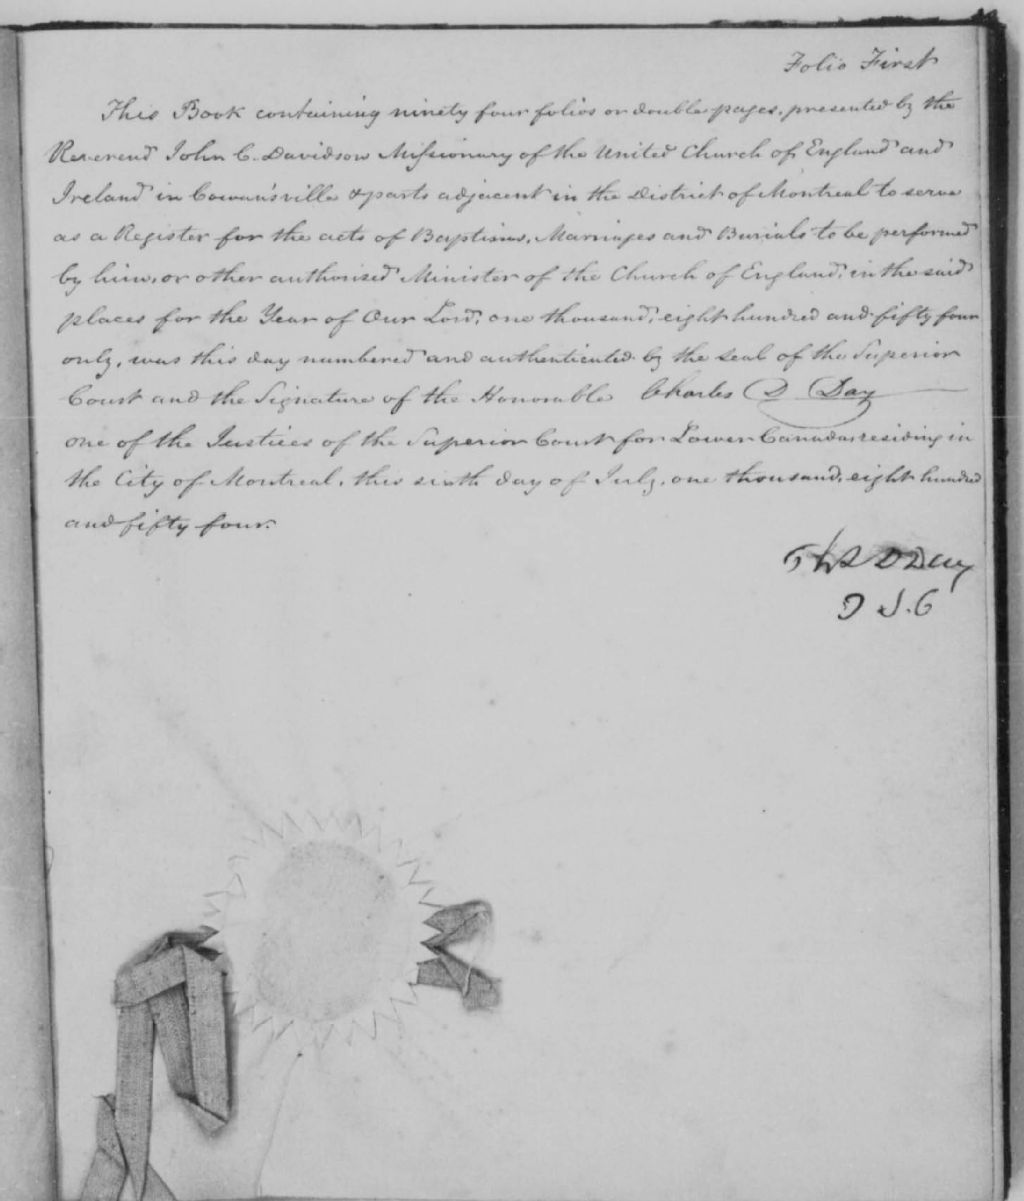 Folio First
This Book containing ninety four folios or double pages, presented by the
Reverend John C. Davidson Missionary of the United Church of England and
Ireland in Cowansville & parts adjacent in the District of Montreal to serve
as a Register for the acts of Baptisms, Marriages and Burials to be performed
by him, or other authorised Minister of the Church of England, in the said
places for the Year of Our Lord, one thousand, eight hundred and fifty four
only, was this day numbered and authenticated by the seal of the Superior
Court and the Signature of the Honorable Charles D Day
one of the Justices of the Superior Court for Lower Canada residing in
the City of Montreal, this sixth day of July, one thousand, eight hundred
and fifty four.
Chs D Day
J S.C